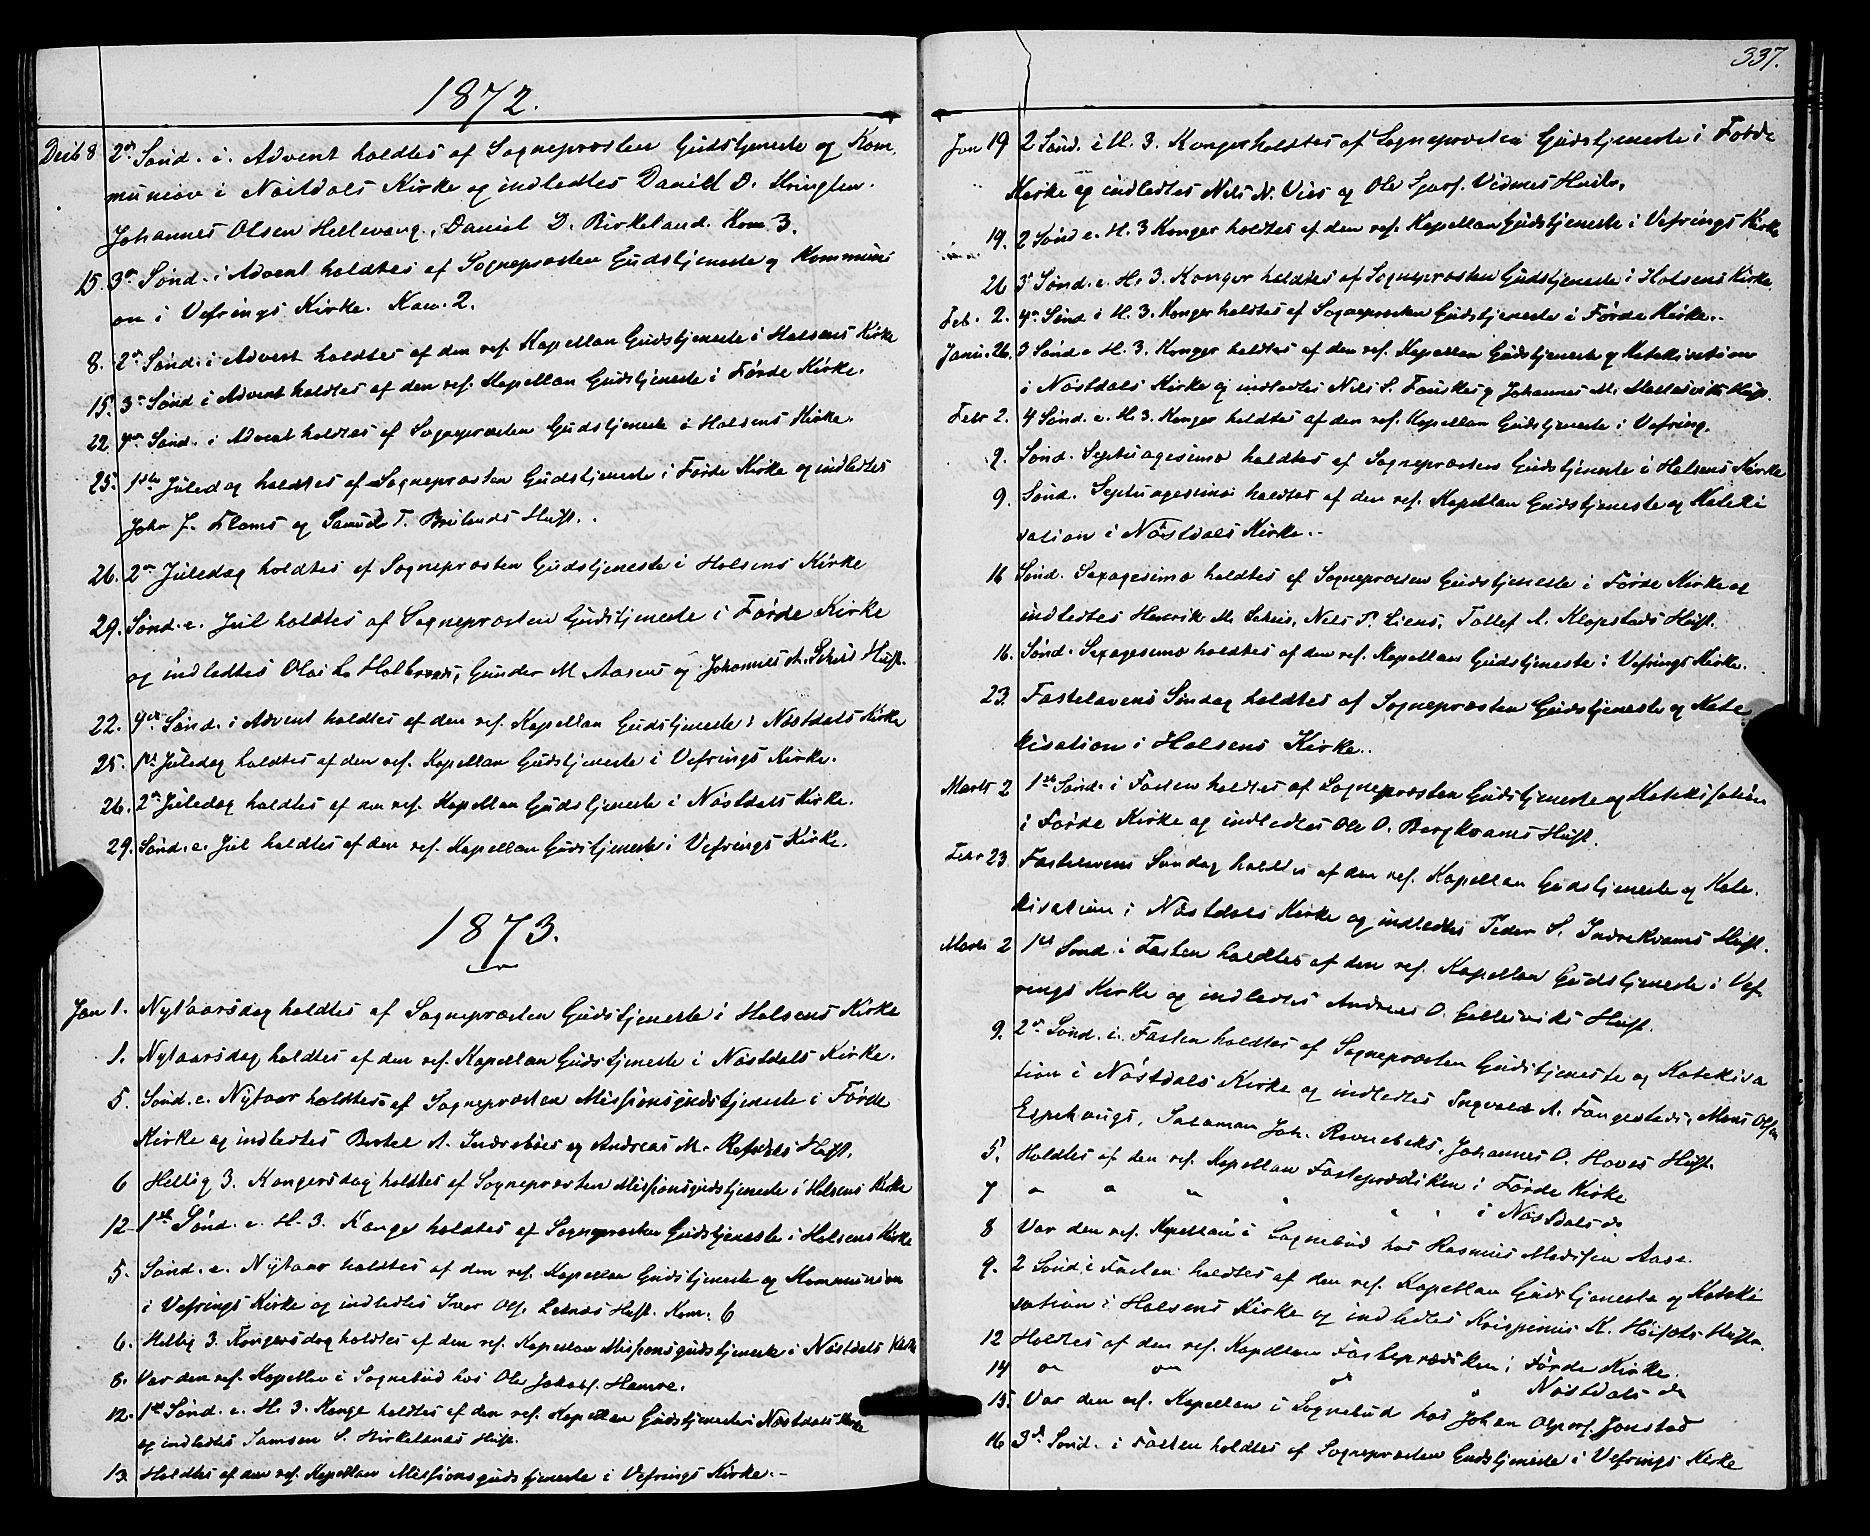 1872.
Decb 8 2den Sönd. i. Advent holdtes af Sognepræsten Gudstjeneste og Kom,
munion i Naustdals Kirke og indledtes Daniel D.
Johannes Olsen Hellevang, Daniel D. Birkeland. Kom 3.
15. 3die Sönd. i Advent holdtes af Sognepræsten Gudstjeneste og Kommuni
on i Vefrings Kirke. Kom. 2.
8. 2den Sönd. i Advent holdtes af den res. Kapellan Gudstjeneste i Holsens Kirke
15. 3die Sönd i Advent holdtes af den res. Kapellan Gudstjeneste i Förde Kirke.
22. 4de Sönd. i Advent holdtes af Sognepræsten Gudstjeneste i Holsens Kirke.
25. 1ste Juledag holdtes af Sognepræsten Gudstjeneste i Förde Kirke og indledtes
John J. Flams og Samuel T. Brulands Hust.
26. 2den Juledag holdtes af Sognepræsten Gudstjeneste i Holsens Kirke
29. Sönd. e. Jul holdtes af Sognepræsten Gudstjeneste i Förde Kirke
og indledtes Gunder M Aasens og Johannes A. Hust.
22. 4de Sönd. i Advent holdtes af den res. Kapellan Gudstjeneste i Nöstdals Kirke
25. 1ste Juledag holdtes af den res. Kapellan Gudstjeneste i Vefrings Kirke.
26. 2den Juledag holdtes af den res. Kapellan Gudstjeneste i Nöstdals Kirke.
29. Sönd. e. Jul holdtes af den res. Kapellan Gudstjeneste i Vefrings Kirke.
1873.
Jan 1. Nytaarsdag holdtes af Sognepræsten Gudstjeneste i Holsens Kirke
1. Nytaarsdag holdtes af den res. Kapellan Gudstjeneste i Nöstdals Kirke.
5. Sönd. e. Nytaar holdtes af Sognepræsten Missionsgudstjeneste i Förde
Kirke og indledtes Bertel A. Indreböes og Andreas M. Refsdals Hust.
6 Hellig 3. Kongersdag holdtes af Sognepræsten Missionsgudstjeneste i Holsens Kirke
12. 1ste Sönd. e. H. 3. Konger holdtes af Sognepræsten Gudstjeneste i Holsens Kirke
5. Sönd. e. Nytaar holdtes af den res. Kapellan Gudstjeneste og Kommunion
i Vefrings Kirke og indledtes Iver Ols. Hust. Kom. 6
6. Hellig 3. Kongersdag holdtes af den res. Kapellan Missionsgudstjeneste i Nöstdals Kirke
8. Var den res. Kapellan i Sognebud hos Ole Jakobs. Hamre.
12. 1ste Sönd. e. H. 3. Konge holdtes af den res. Kapellan Gudstjeneste i Nöstdals Kirke
og indledtes Samson S. Birkelands Hust.
13 Holdtes af den res. Kapellan Missionsgudstjeneste i Vefrings Kirke.-
337.
Jan 19 2 Sönd. i H. 3. Konger holdtes af Sognepræsten Gudstjeneste i Förde
Kirke og indledtes Nels N. Vies og Ole Vidnes Hustr.
19. 2 Sönd e. H. 3 Konger holdtes af den res. Kapellan Gudstjeneste i Vefrings Kirke
26 3 Sönd. e. H. 3. Konger holdtes af Sognepræsten Gudstjeneste i Holsens Kirke.
Feb. 2. 4de Sönd i H. 3. Konger holdtes af Sognepræsten Gudstjeneste i Förde Kirke.-
Janu. 26. 3 Sönd e H. 3. Konger holdtes af den res. Kapellan Gudstjeneste og Katekisation
i Nöstdals Kirke og indledtes Nils S. og Johannes M. Hust.
Febr 2. 4 Sönd. e. H. 3. Konger holdtes af den res. Kapellan Gudstjeneste i Vefring.
9. Sönd. Septuagesima holdtes af Sognepræsten Gudstjeneste i Holsens Kirke
9. Sönd. Septuagesima holdtes af den res. Kapellan Gudstjeneste og Kateki
sation i Nöstdals Kirke.-
16 Sönd. Sexagesima holdtes af Sognepræsten Gudstjeneste i Förde Kirke og
indledtes Henrik M. Nels P. Liens, Tollef A. Klopstads Hust.
16. Sönd. Sexagesima holdtes af den res. Kapellan Gudstjeneste i Vefrings Kirke.
23. Fastelavens Söndag holdtes af Sognepræsten Gudstjeneste og Kate
kisation i Holsens Kirke.
Marts 2 1ste Sönd. i Fasten holdtes af Sognepræsten Gudstjeneste og Katekisation
i Förde Kirke og indledtes Ole O. Bergkvams Hust.
Febr 23. Fastelavens Söndag holdtes af den res. Kapellan Gudstjeneste og Kate.
kisation i Nöstdals Kirke og indledtes Peder S. Indrekvams Hust.
Marts 2 1ste Sönd. i Fasten holdtes af den res. Kapellan Gudstjeneste i Vef
rings Kirke og indledtes Andreas O. Hust.
9. 2den Sönd. i. Fasten holdtes af Sognepræsten Gudstjeneste og Katekisa
tion i Nöstdals Kirke og indledtes Ingvald A. Mons Olsen
Espehaugs, Salamon Joh. Johannes O. Hoves Hust.
5. Holdtes af den res. Kapellan Fasteprædiken i Förde Kirke
7 " " " " " " i Nöstdals do
8 Var den res. Kapellan i Sognebud hos Rasmus Madssen Aase.
9. 2 Sönd. i Fasten holdtes af den res. Kapellan Gudstjeneste og Kateki
sation i Holsens Kirke og indledtes Krispinus K. Hustr.
12 Holdtes af den res. Kapellan Fasteprædiken i Förde Kirke.
14 " " " " Nöstdals do
15. Var den res. Kapellan i Sognebud hos Johan Jonstad
16 3die Sönd. i Fasten holdtes af Sognepræsten Gudstjeneste i Vefrings Kirke